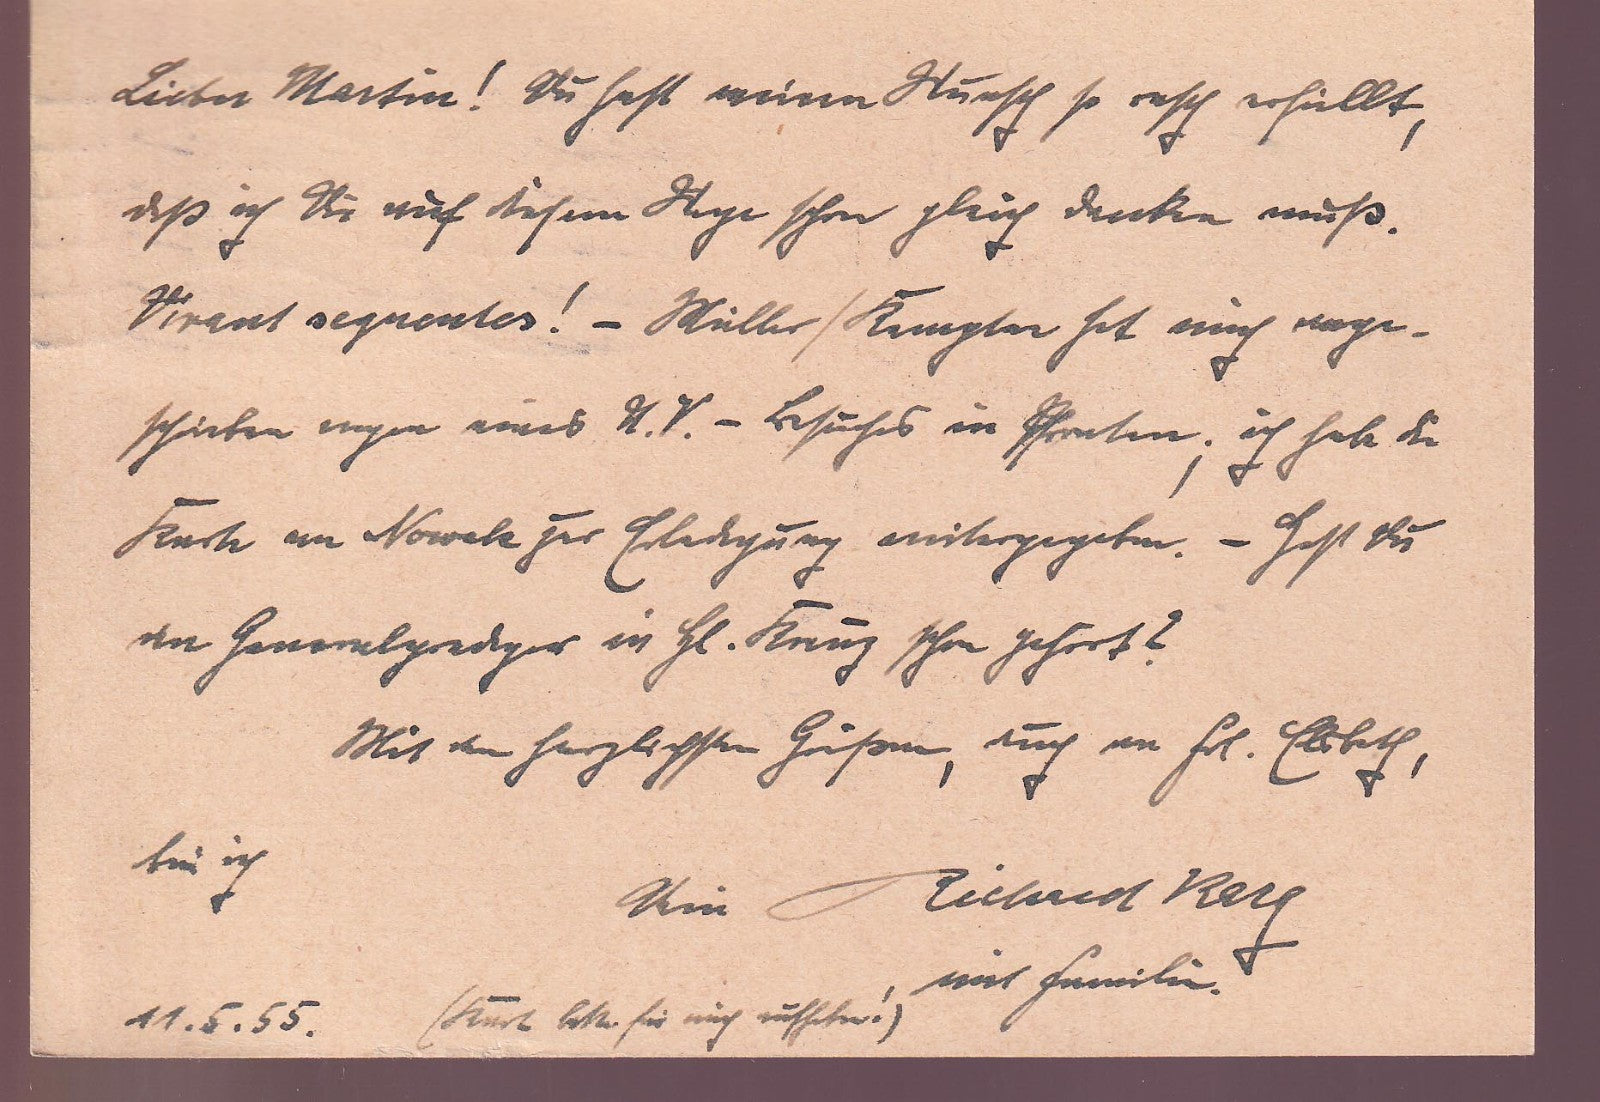 Lieber Martin! Du hast meinen Wunsch so rasch erfüllt,
daß ich Dir auf diesem Wege schon gleich danken muß.
Vivant sequentes! – Müller/Kempten hat mich ange-
schrieben wegen eines N.V. – Besuches in Pfronten; ich habe die
Karte an Nowak zur Erledigung weitergegeben. – Hast Du
den Generalprediger in Hl. Kreuz schon gehört?
Mit den herzlichsten Grüßen, auch an Frl. Elsbeth,
bin ich
Dein Richard Karg
mit Familie.
11.5.55. (Karte bitte für mich aufheben!)